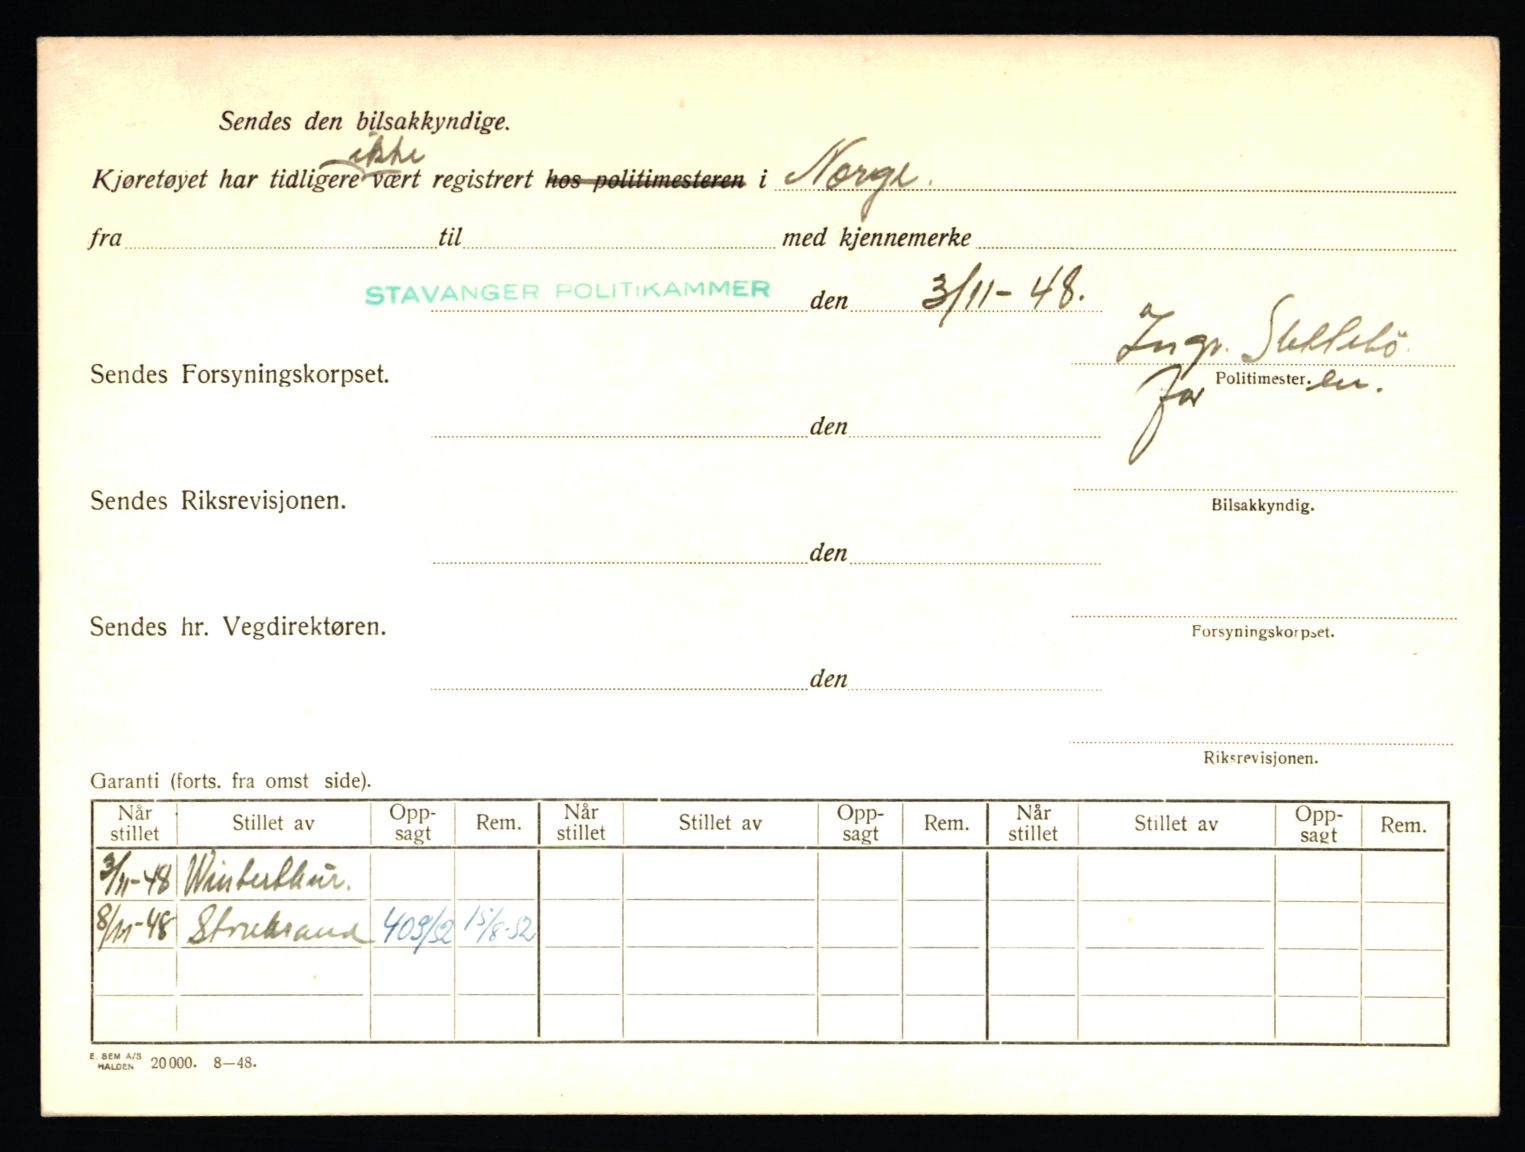 Sendes den bilsakkyndige.
ikke
Kjøretøyet har tidligere vært registrert hos politimesteren i Norge.
fra til med kjennemerke
STAVANGER POLITIKAMMER den 3/11-48.
Ingv.
Sendes Forsyningskorpset.
for Politimester. en.
den
Sendes Riksrevisjonen.
Bilsakkyndig.
den
Sendes hr. Vegdirektøren.
Forsyningskorpset.
den
Riksrevisjonen.
Garanti (forts. fra omst side).
Når stillet Stillet av Opp-sagt Rem. Når stillet Stillet av Opp-sagt Rem. Når stillet Stillet av Opp-sagt Rem.
3/11-48 Winterthur.
8/11-48 Storebrand 409/52 15/8-52
E. SEM A/S HALDEN 20000. 8—48.